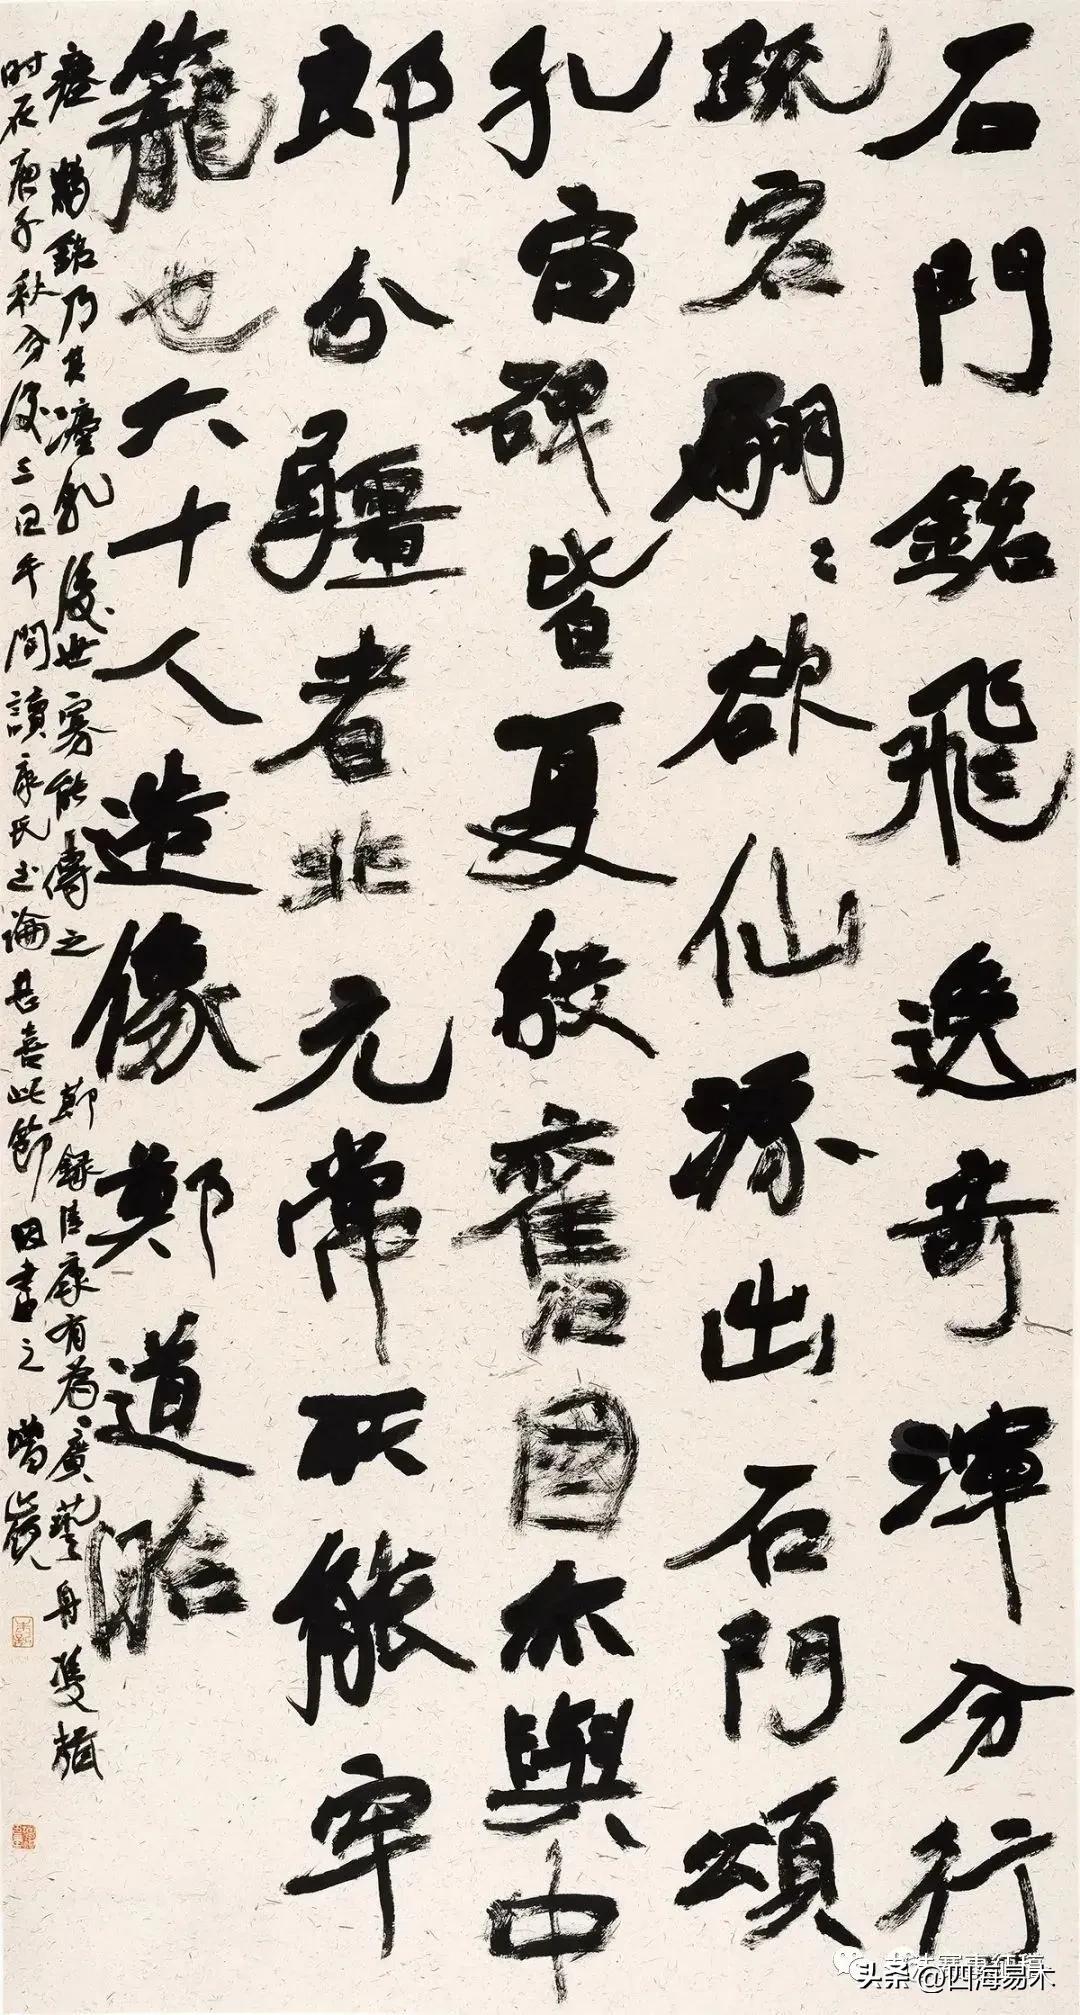 石門銘飛逸奇渾分行
疏宕翩〻欲仙源出石門頌
孔宙碑皆夏殷舊國亦與中
郎分疆者非元常所能牢
籠也六十人造像鄭道昭
瘞鶴銘乃其灋乳後世寡能傳之 節録清康有為廣藝舟雙楫
时在庚子秋分後三日午間讀康氏书論甚喜此節因書之
头条 @四海易木